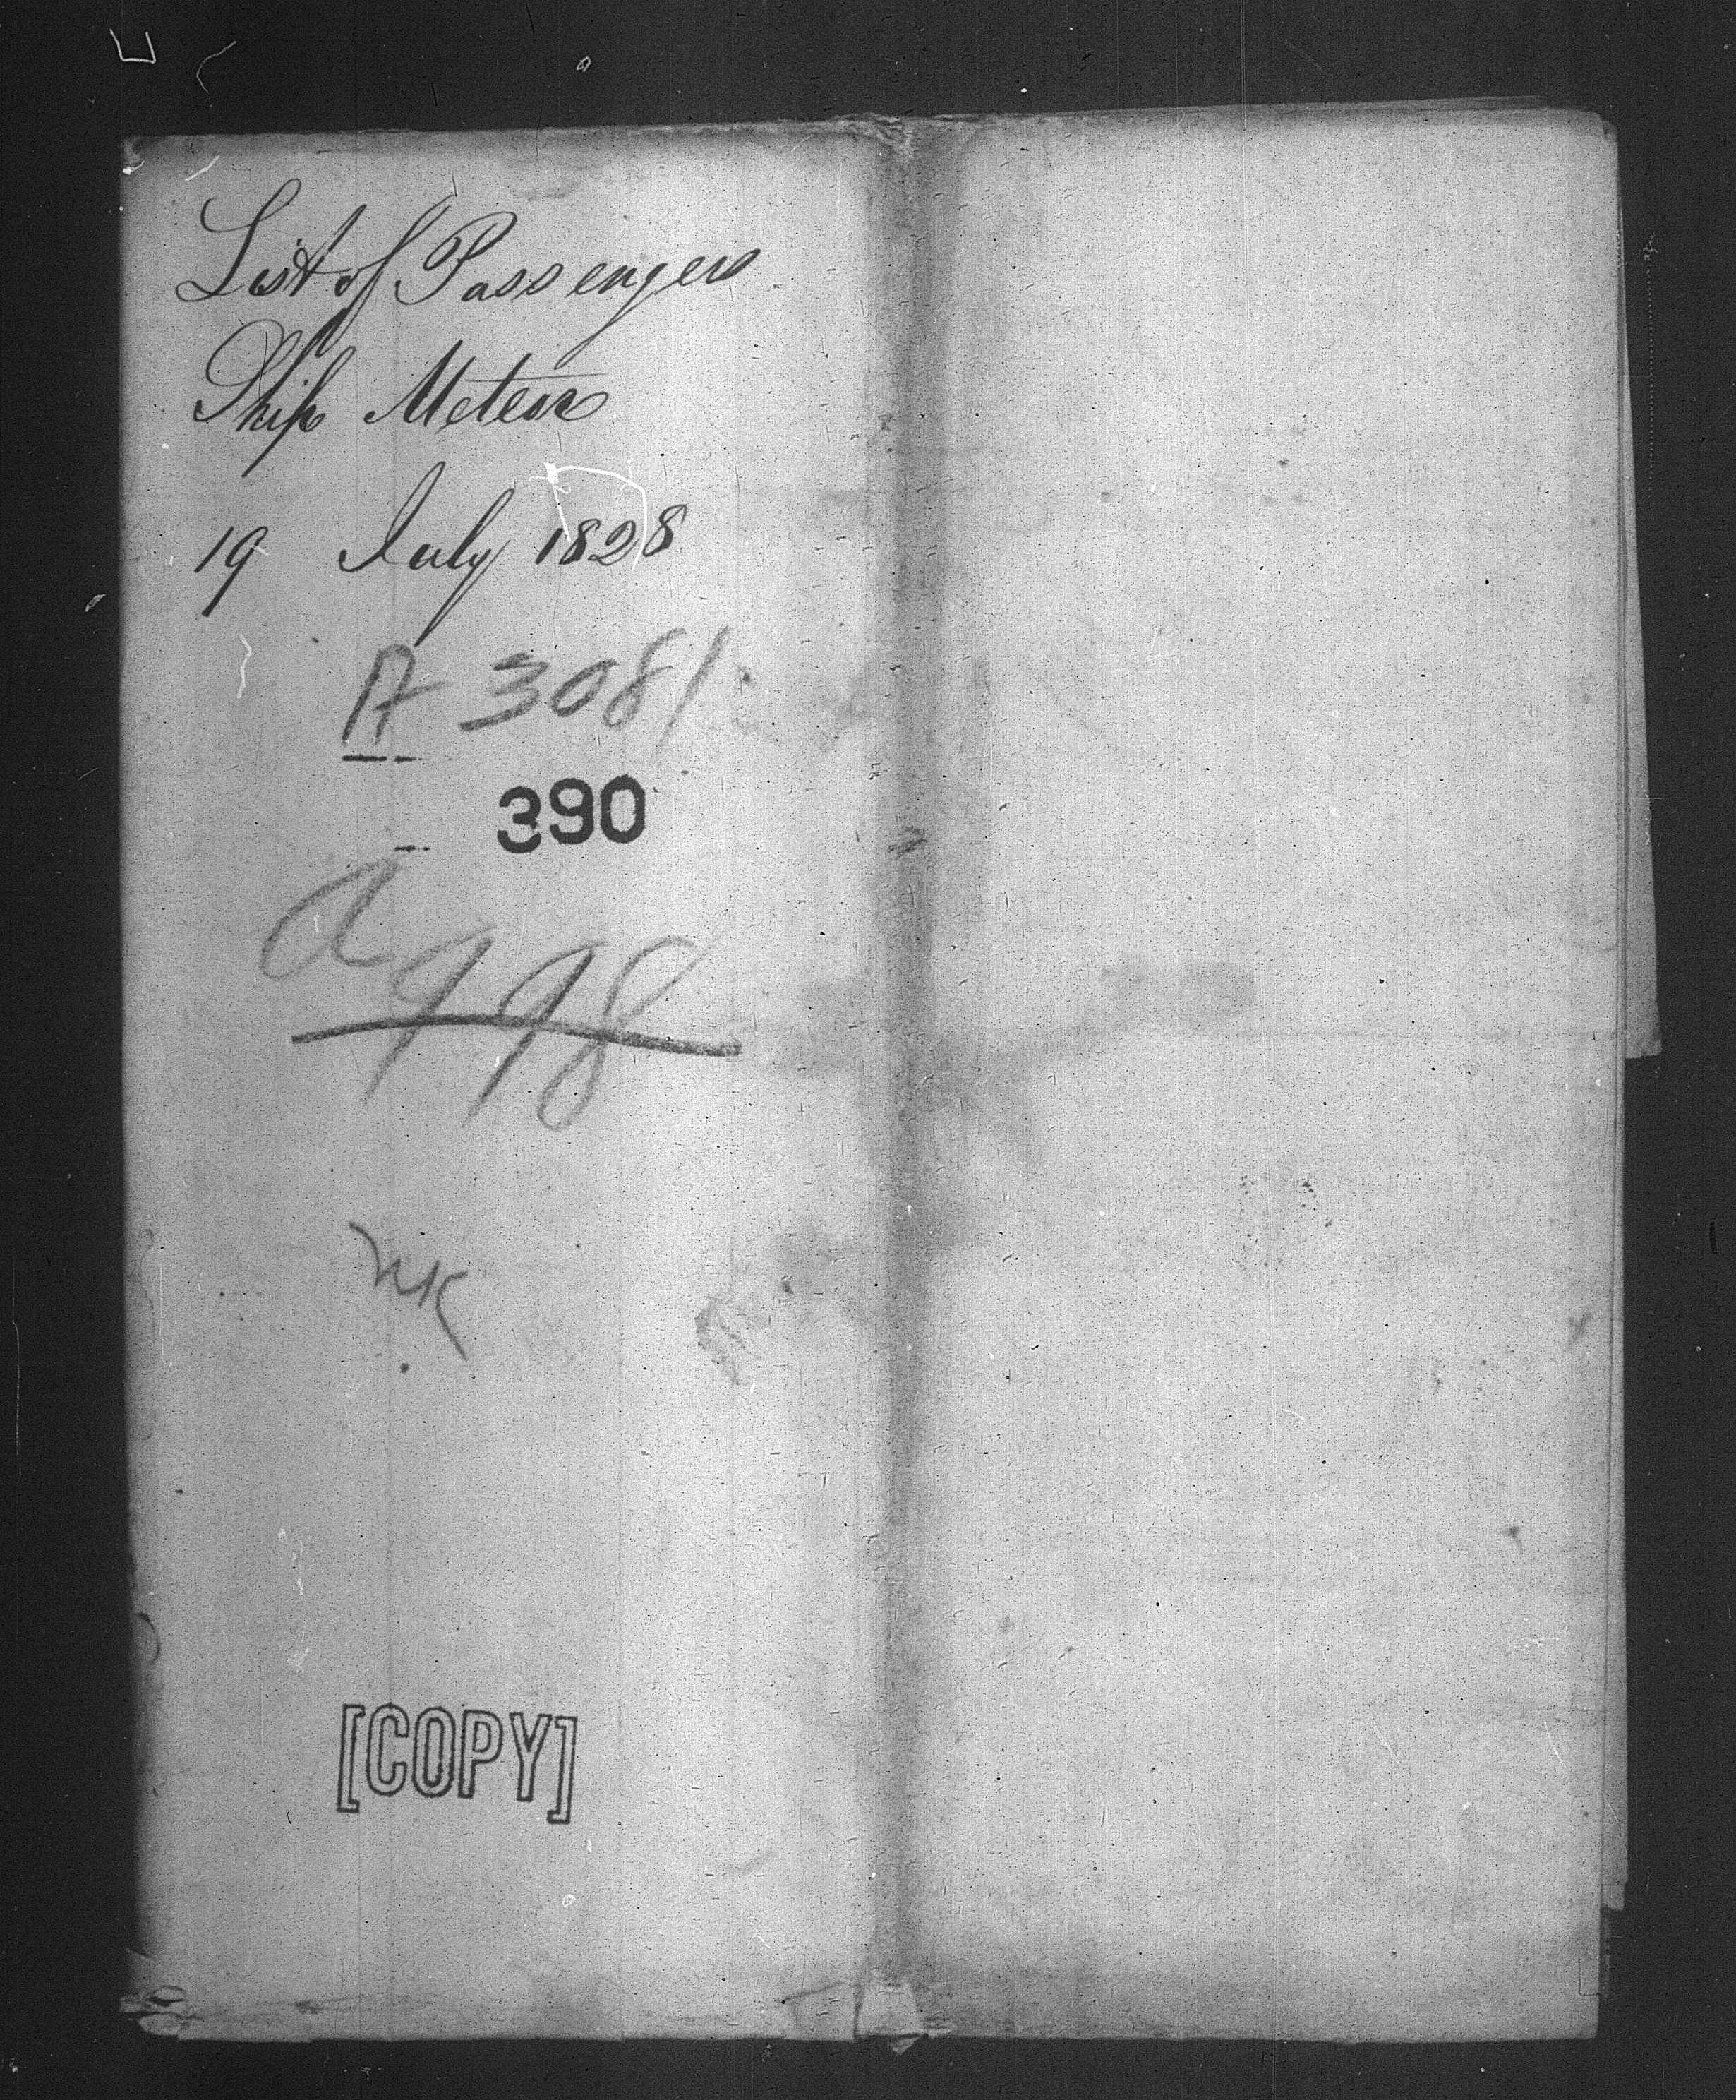 List of Passengers
Ship Meteor
19 July 1828
A 3081
390
a 998
[COPY]